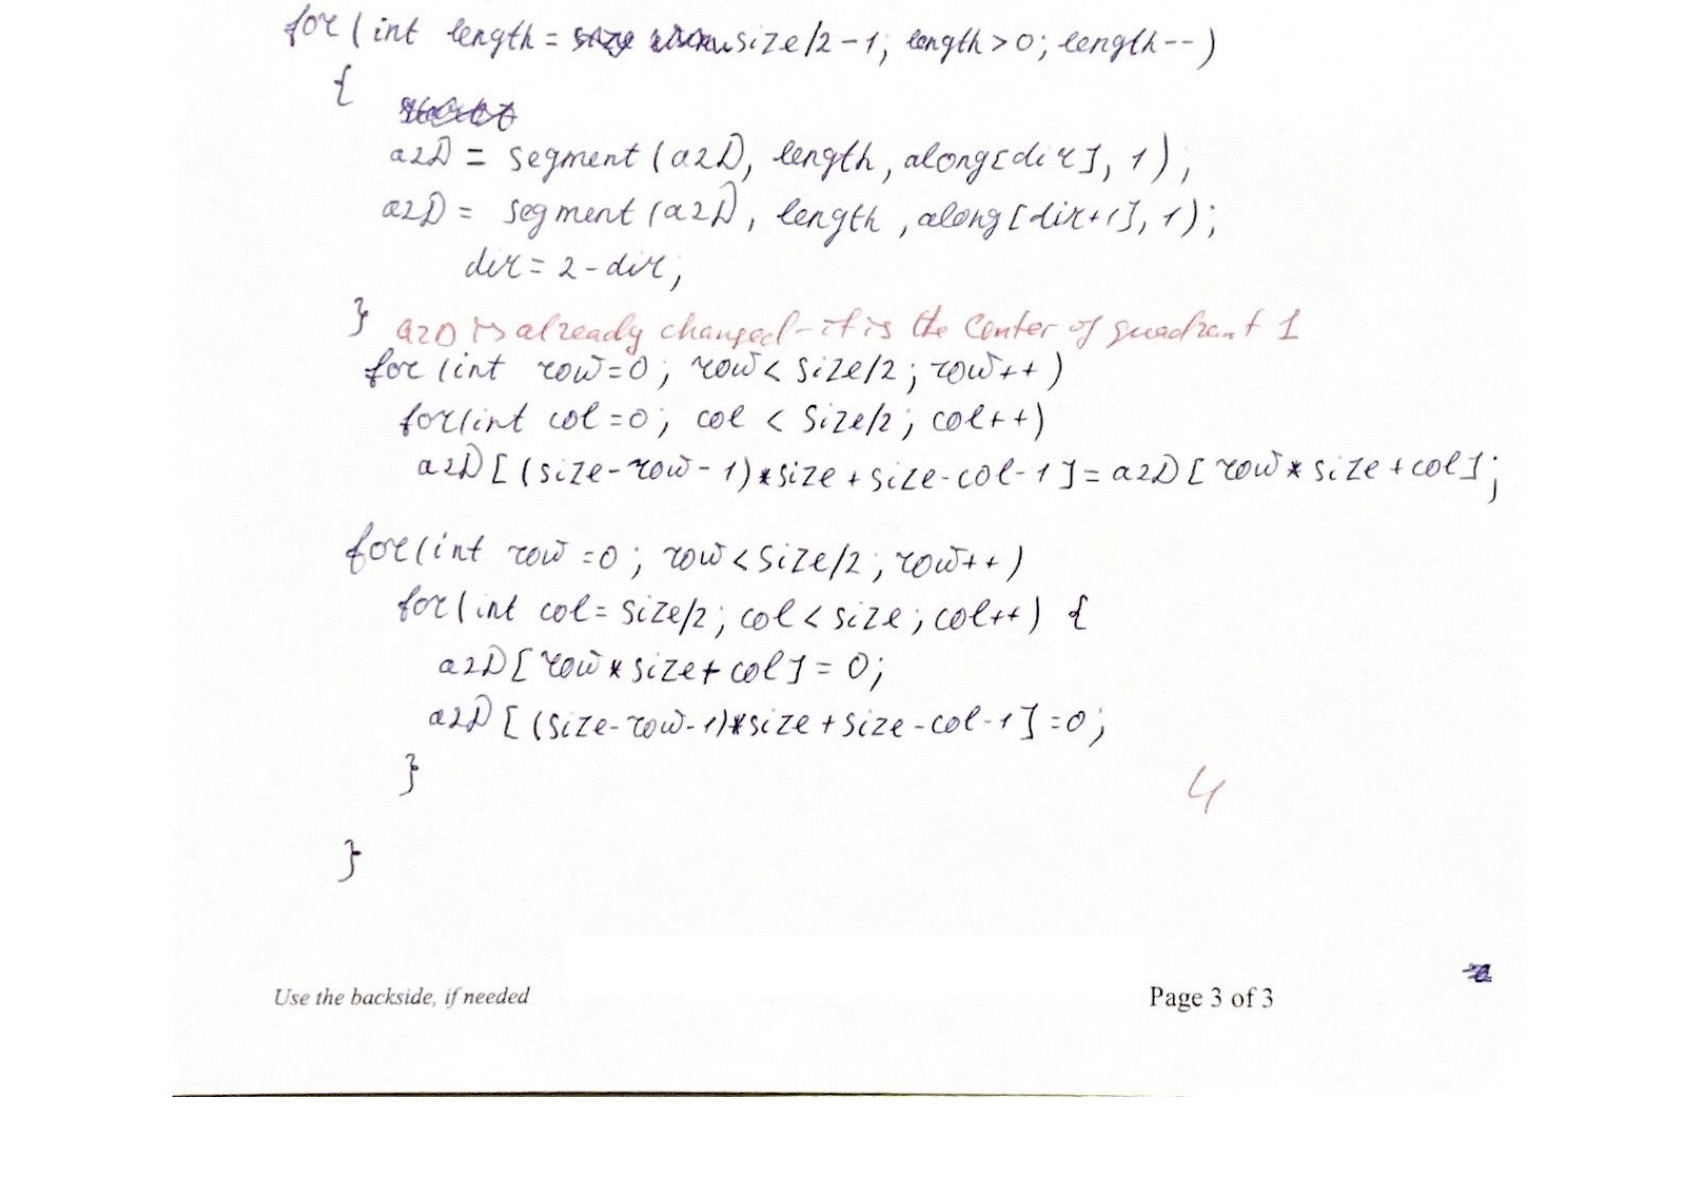 for(int length = size/2-1; length>0; length--)
{
a2D = segment(a2D, length, along[dir], 1);
a2D = segment(a2D, length, along[dir+1], 1);
dir = 2-dir;
} a2D is already changed - it is the center of quadrant 1
for(int row=0; row< size/2; row++)
for(int col=0; col < size/2; col++)
a2D[(size-row-1)*size+size-col-1]=a2D[row*size+col];
for(int row=0; row<size/2; row++)
for(int col=size/2; col<size; col++) {
a2D[row*size+col]=0;
a2D[(size-row-1)*size+size-col-1]=0;
}
4
}
Use the backside, if needed Page 3 of 3